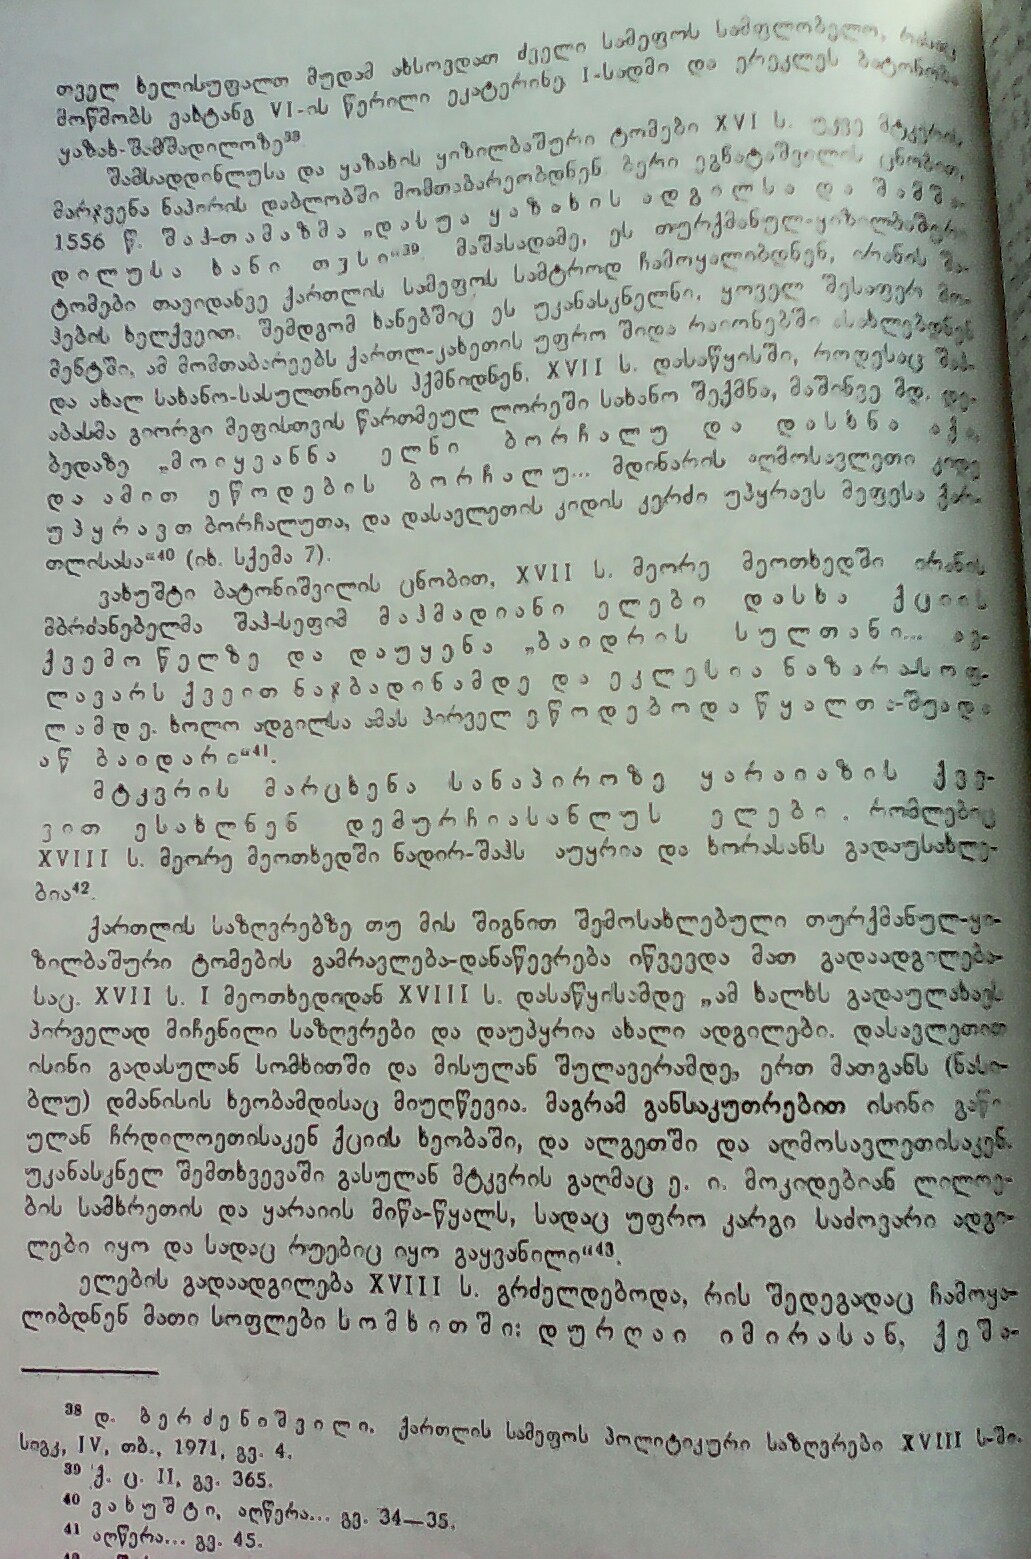 თველ ხელისუფალთ მუდამ ახსოვდათ ძველი სამეფოს სამფლობელო, რასაც
მოწმობს ვახტანგ VI-ის წერილი ეკატერინე I-სადმი და ერეკლეს ბატონობა
ყაზახ-შამშადილოზე³⁸
შამსადდინლუსა და ყაზახის ყიზილბაშური ტომები XVI ს. უკვე მტკვრის
მარჯვენა ნაპირის დაბლობში მომთაბარეობდნენ. ბერი ეგნატაშვილის ცნობით,
1556 წ. შაჰ-თამაზმა „დასუა ყაზახის ადგილსა და შამშა-
დილუსა ხანი თვსი“³⁹. მაშასადამე, ეს თურქმანულ-ყიზილბაშური
ტომები თავიდანვე ქართლის სამეფოს სამტროდ ჩამოყალიბდნენ, ირანის შა-
ჰების ხელქვეით. შემდგომ ხანებშიც ეს უკანასკნელნი, ყოველ შესაფერ მო-
მენტში, ამ მომთაბარეებს ქართლ-კახეთის უფრო შიდა რაიონებში ასახლებდნენ
და ახალ სახანო-სასულთნოებს ჰქმნიდნენ. XVII ს. დასაწყისში, როდესაც შაჰ-
აბასმა გიორგი მეფისთვის წართმეულ ლორეში სახანო შექმნა, მაშინვე მდ. დე-
ბედაზე „მოიყვანნა ელნი ბორჩალუ და დასხნა აქა,
და ამით ეწოდების ბორჩალუ... მდინარის აღმოსავლეთი კიდე
უპყრავთ ბორჩალუთა, და დასავლეთის კიდის კერძი უპყრავს მეფესა ქარ-
თლისასა“⁴⁰ (იხ. სქემა 7).
ვახუშტი ბატონიშვილის ცნობით, XVII ს. მეორე მეოთხედში ირანის
მბრძანებელმა შაჰ-სეფიმ მაჰმადიანი ელები დასხა ქციის
ქვემო წელზე და დაუყენა „ბაიდრის სულთანი... აგ-
ლავარს ქვეით ნაჯბადინამდე და ეკლესია ნაზარასოფ-
ლამდე. ხოლო ადგილსა ამას პირველ ეწოდებოდა წყალთა-შუადა
აწ ბაიდარი“⁴¹.
მტკვრის მარცხენა სანაპიროზე ყარაიაზის ქვე-
ვით ესახლნენ დემურჩიასანლუს ელები, რომლებიც
XVIII ს. მეორე მეოთხედში ნადირ-შაჰს აუყრია და ხორასანს გადაუსახლე-
ბია⁴².
ქართლის საზღვრებზე თუ მის შიგნით შემოსახლებული თურქმანულ-ყი-
ზილბაშური ტომების გამრავლება-დანაწევრება იწვევდა მათ გადაადგილება-
საც. XVII ს. I მეოთხედიდან XVIII ს. დასაწყისამდე „ამ ხალხს გადაულახავს
პირველად მიჩენილი საზღვრები და დაუპყრია ახალი ადგილები. დასავლეთით
ისინი გადასულან სომხითში და მისულან შულავერამდე, ერთ მათგანს (ნასი-
ბლუ) დმანისის ხეობამდისაც მიუღწევია. მაგრამ განსაკუთრებით ისინი გაწი-
ულან ჩრდილოეთისაკენ ქციის ხეობაში, და ალგეთში და აღმოსავლეთისაკენ.
უკანასკნელ შემთხვევაში გასულან მტკვრის გაღმაც ე. ი. მოკიდებიან ლილოე-
ბის სამხრეთის და ყარაიის მიწა-წყალს, სადაც უფრო კარგი საძოვარი ადგი-
ლები იყო და სადაც რუებიც იყო გაყვანილი“⁴³.
ელების გადაადგილება XVIII ს. გრძელდებოდა, რის შედეგადაც ჩამოყა-
ლიბდნენ მათი სოფლები სომხითში: დურღაი იმირასან, ქეშა-
³⁸ დ. ბერძენიშვილი, ქართლის სამეფოს პოლიტიკური საზღვრები XVIII ს-ში.
სიგკ, IV, თბ., 1971, გვ. 4.
³⁹ ქ. ც. II, გვ. 365.
⁴⁰ ვახუშტი, აღწერა... გვ. 34—35.
⁴¹ აღწერა... გვ. 45.